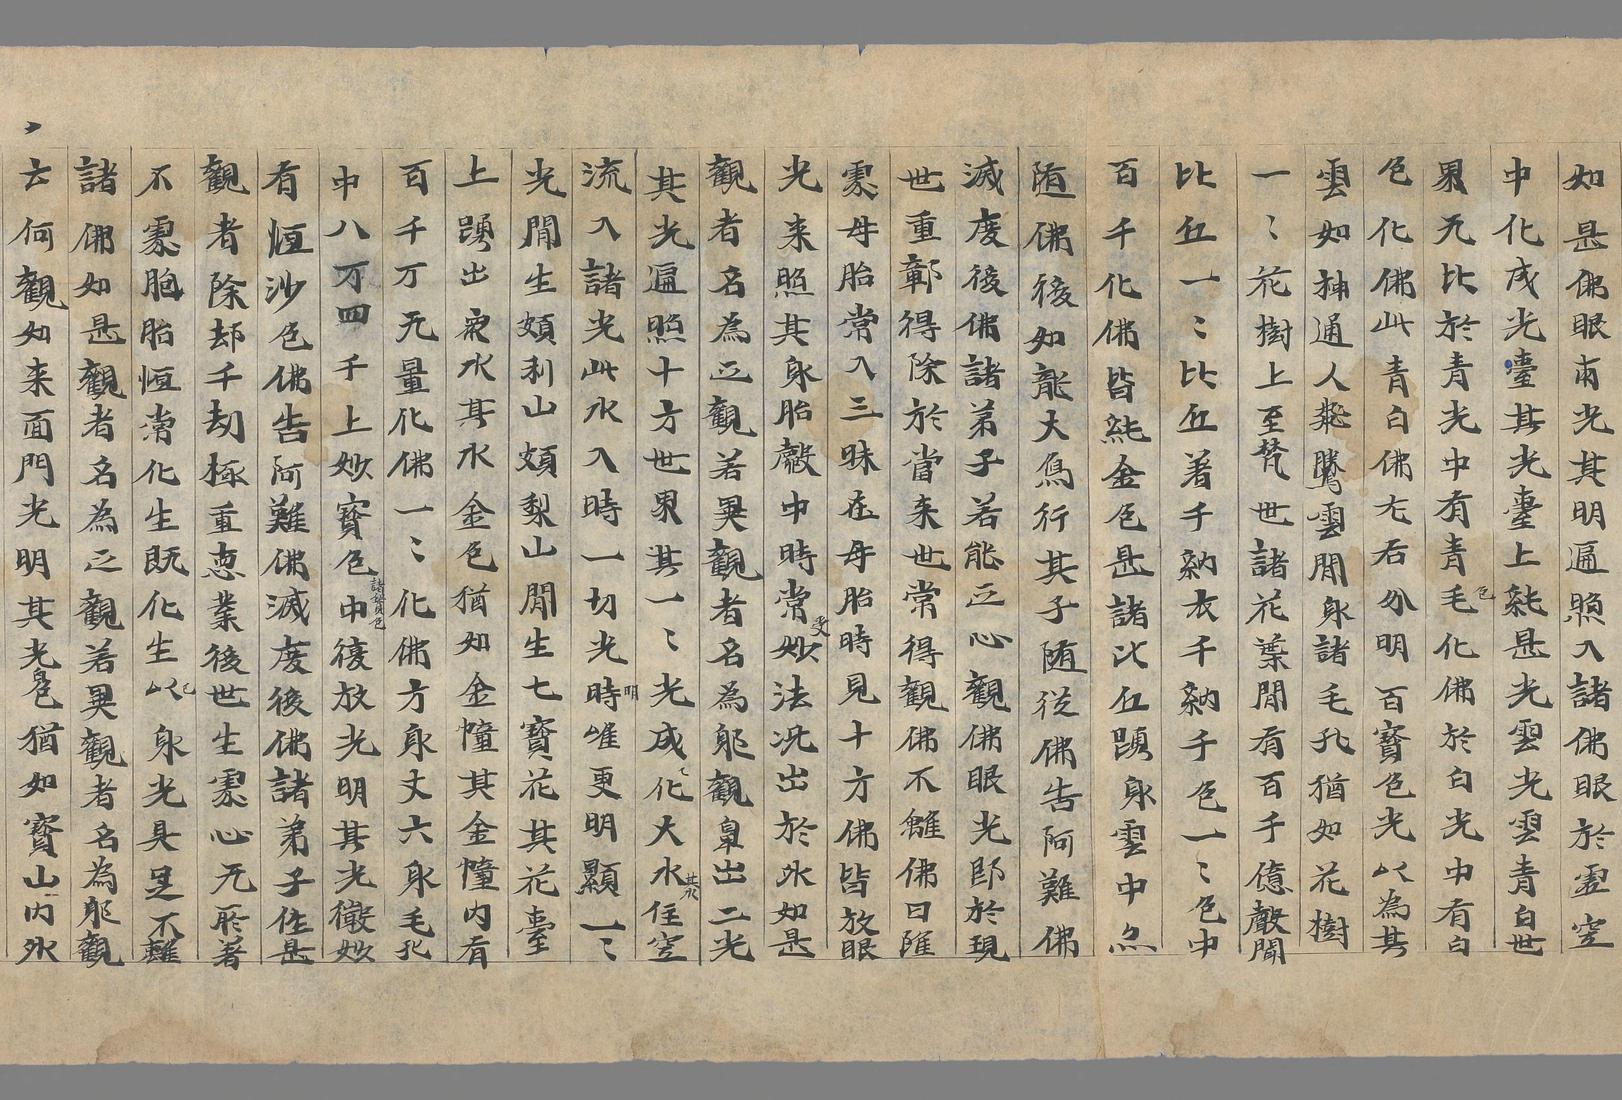 如是佛眼雨光其明遍照入諸佛眼於虛空
中化成光臺其光臺上純是光雲光雲青白世
界无比於青光中有青毛化佛於白光中有白
色化佛此青白佛左右分明百寶色光以為其
雲如神通人飛騰雲間身諸毛孔猶如花樹
一〻花樹上至梵世諸花葉間有百千億聲聞
比丘一〻比丘著千納衣千納千色一〻色中
百千化佛皆純金色是諸比丘踴身雲中
隨佛後如龍大鳥行其子隨從佛告阿難佛
滅度後佛諸弟子若能正心觀佛眼光即於現
世重鄣得除於當来世常得觀佛不離佛日
處母胎常入三昧在母胎時見十方佛皆放眼
光来照其身胎聲中時常妙法況出於外如是
觀者名為正觀若異觀者名為耶觀鼻出二光
其光遍照十方世界其一〻光成化大水住空
流入諸光此水入時一切光時唯更明顯一〻
光間生頗利山頗梨山間生七寶花其花臺
上踴出衆水其水金色猶如金幢其金幢内有
百千万无量化佛一〻化佛方身丈六身毛孔
中八万四千上妙寶色中復放光明其光微妙
有恒沙色佛告阿難佛滅度後佛諸弟子住是
觀者除却千劫極重惡業後世生處心无所著
不處胞胎恒常化生既化生以身光具足不離
諸佛如是觀者名為正觀若異觀者名為耶觀
云何觀如来面門光明其光色猶如寶山内外